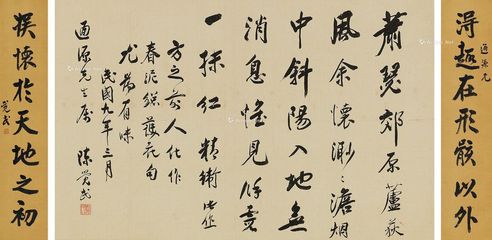 得趣在形骸以外
通源兄
蕭瑟郊原蘆荻
風余懷渺渺澹烟
中斜陽入地無
消息惟見餘霞
一抹紅 精衛此作
方之前人化作
春泥護花句
尤為有味
民國九年三月
通源先生屬
陳
懷於天地之初